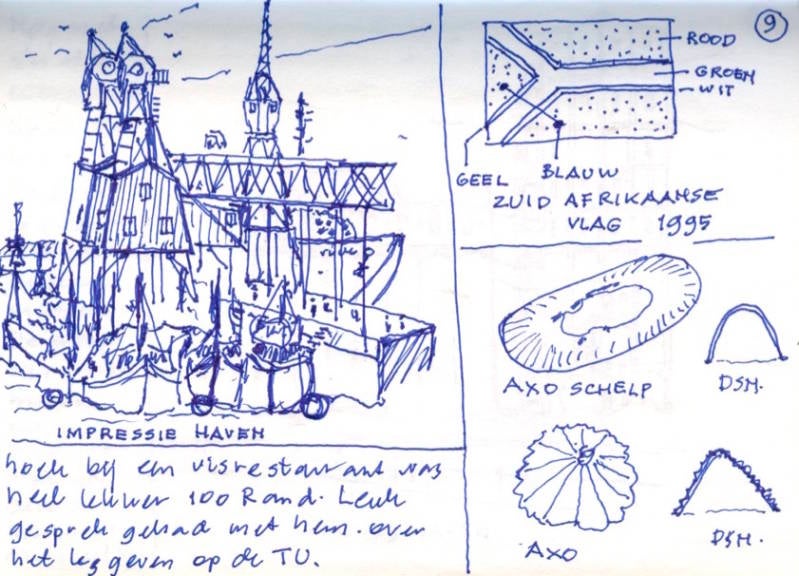 9
ROOD
GROEN
WIT
GEEL
BLAUW
ZUID AFRIKAANSE
VLAG 1995
AXO SCHELP
DSN.
AXO
DSN.
IMPRESSIE HAVEN
hoek bij een visrestaurant was
heel lekker 100 Rand. Leuk
gesprek gehad met hem. over
het lesgeven op de TU.